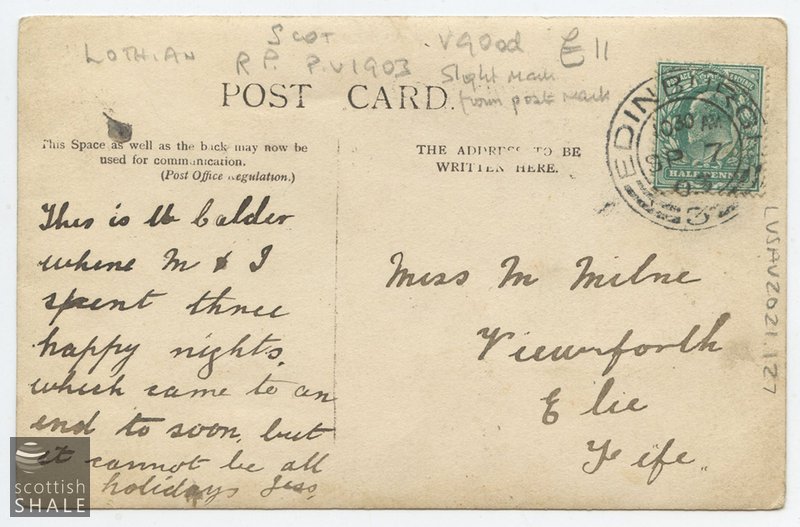 LOTHIAN
SCOT
RP. P.U1903
V9OOd
£11
Slight Mark
from post mark
POST CARD.
This Space as well as the back may now be
used for communication.
(Post Office Regulation.)
THE ADDRESS TO BE
WRITTEN HERE.
HALF PENNY
EDINBURGH
10.30 AM
SP 7
03
3
This is W Calder
where M & I
spent three
happy nights,
which came to an
end to soon, but
it cannot be all
holidays Jess.
Miss M Milne
Viewforth
Elie
Fife.
LVSAV2021.127
scottish
SHALE